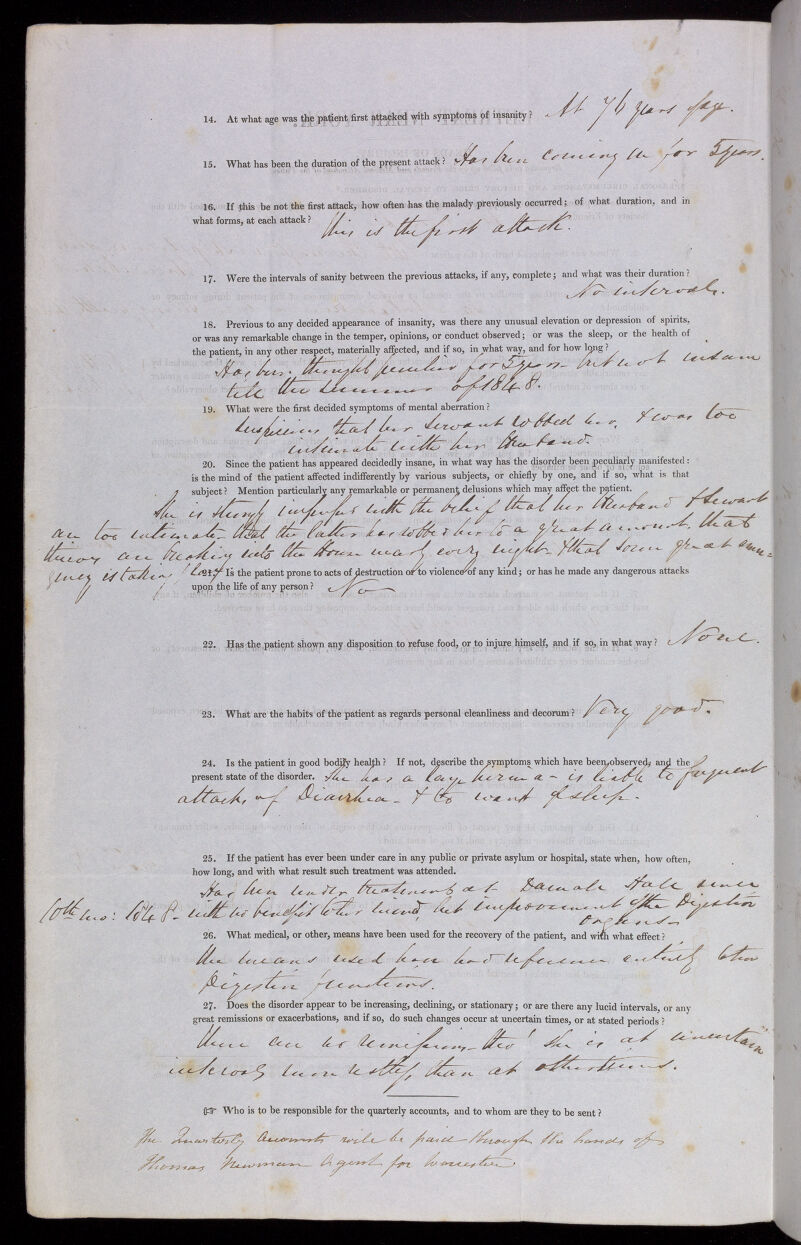 14. At what age was the patient first attacked with symptoms of insanity? At 76 years of age.
15. What has been the duration of the present attack? Has been coming on for 5 years.
16. If this be not the first attack, how often has the malady previously occurred; of what duration, and in
what forms, at each attack?
This is the first attack.
17. Were the intervals of sanity between the previous attacks, if any, complete; and what was their duration?
No intervals.
18. Previous to any decided appearance of insanity, was there any unusual elevation or depression of spirits,
or was any remarkable change in the temper, opinions, or conduct observed; or was the sleep, or the health of
the patient, in any other respect, materially affected, and if so, in what way, and for how long?
Has been thought peculiar for 5 years - but not insane
till the summer of 1848.
19. What were the first decided symptoms of mental aberration?
Suspicions that her servant robbed her, & was too
intimate with her Husband.
20. Since the patient has appeared decidedly insane, in what way has the disorder been peculiarly manifested:
is the mind of the patient affected indifferently by various subjects, or chiefly by one, and if so, what is that
subject? Mention particularly any remarkable or permanent delusions which may affect the patient.
She is strongly impressed with the belief that her Husband & Servant
are too intimate - that the latter has robbed her to a great amount, that
thieves are breaking into the House nearly every night & that some great
is taking
21. Is the patient prone to acts of destruction or to violence of any kind; or has he made any dangerous attacks
upon the life of any person? No
22. Has the patient shown any disposition to refuse food, or to injure himself, and if so, in what way? None.
23. What are the habits of the patient as regards personal cleanliness and decorum? Very good.
24. Is the patient in good bodily health? If not, describe the symptoms which have been observed, and the
present state of the disorder. She has a large hernia - is liable to frequent
attacks of Diarrhea - & to want of sleep.
25. If the patient has ever been under care in any public or private asylum or hospital, state when, how often,
how long, and with what result such treatment was attended.
Has been under treatment at Hall since
10th mo: 1848 - with no benefit to her mind, but improvement of the Digestive
organs -
26. What medical, or other, means have been used for the recovery of the patient, and with what effect?
The means used have had reference entirely to the
Digestive functions.
27. Does the disorder appear to be increasing, declining, or stationary; or are there any lucid intervals, or any
great remissions or exacerbations, and if so, do such changes occur at uncertain times, or at stated periods?
There are no remissions - tho' she is at uncertain
intervals more restless than at other times.
☞ Who is to be responsible for the quarterly accounts, and to whom are they to be sent?
The Quarterly Accounts will be paid through the hands of
Thomas Newman Agent for Worcester